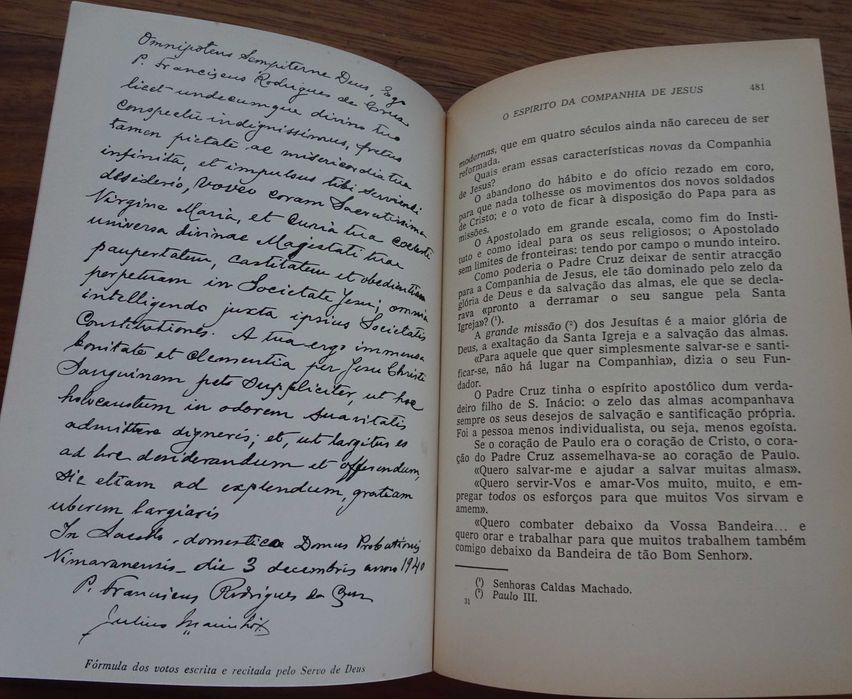 Omnipotens Sempiterne Deus, Ego
P. Franciscus Rodrigues da Cruz
licet undecumque divino tuo
conspectu indignissimus, fretus
tamen pietate ac misericordia tua
infinita, et impulsus tibi serviendi
desiderio, voveo coram Sacratissima
Virgine Maria, et Curia tua coelesti
universa divinae Magestati tuae
paupertatem, castitatem et obedientiam
perpetuam in Societate Jesu; omnia
intelligendo juxta ipsius Societatis
Constitutiones. A tua ergo immensa
bonitate et clementia per Jesu Christi
Sanguinem peto suppliciter, ut hoc
holocaustum in odorem suavitatis
admittere digneris; et, ut largitus es
ad hoc desiderandum et offerendum,
sic etiam ad explendum, gratiam
uberem largiaris
In Sacello domestico Domus Probationis
Vimaranensis die 3 decembris anno 1940
P. Franciscus Rodrigues da Cruz
Julius
Fórmula dos votos escrita e recitada pelo Servo de Deus
O ESPIRITO DA COMPANHIA DE JESUS 481
modernas, que em quatro séculos ainda não careceu de ser
reformada.
Quais eram essas características novas da Companhia
de Jesus?
O abandono do hábito e do ofício rezado em coro,
para que nada tolhesse os movimentos dos novos soldados
de Cristo; e o voto de ficar à disposição do Papa para as
missões.
O Apostolado em grande escala, como fim do Insti-
tuto e como ideal para os seus religiosos; o Apostolado
sem limites de fronteiras: tendo por campo o mundo inteiro.
Como poderia o Padre Cruz deixar de sentir atracção
para a Companhia de Jesus, ele tão dominado pelo zelo da
glória de Deus e da salvação das almas, ele que se decla-
rava «pronto a derramar o seu sangue pela Santa
Igreja»? (¹).
A grande missão (²) dos Jesuítas é a maior glória de
Deus, a exaltação da Santa Igreja e a salvação das almas.
«Para aquele que quer simplesmente salvar-se e santi-
ficar-se, não há lugar na Companhia», dizia o seu Fun-
dador.
O Padre Cruz tinha o espírito apostólico dum verda-
deiro filho de S. Inácio: o zelo das almas acompanhava
sempre os seus desejos de salvação e santificação própria.
Foi a pessoa menos individualista, ou seja, menos egoísta.
Se o coração de Paulo era o coração de Cristo, o cora-
ção do Padre Cruz assemelhava-se ao coração de Paulo.
«Quero salvar-me e ajudar a salvar muitas almas».
«Quero servir-Vos e amar-Vos muito, muito, e em-
pregar todos os esforços para que muitos Vos sirvam e
amem».
«Quero combater debaixo da Vossa Bandeira... e
quero orar e trabalhar para que muitos trabalhem também
comigo debaixo da Bandeira de tão Bom Senhor».
(¹) Senhoras Caldas Machado.
(²) Paulo III.
31